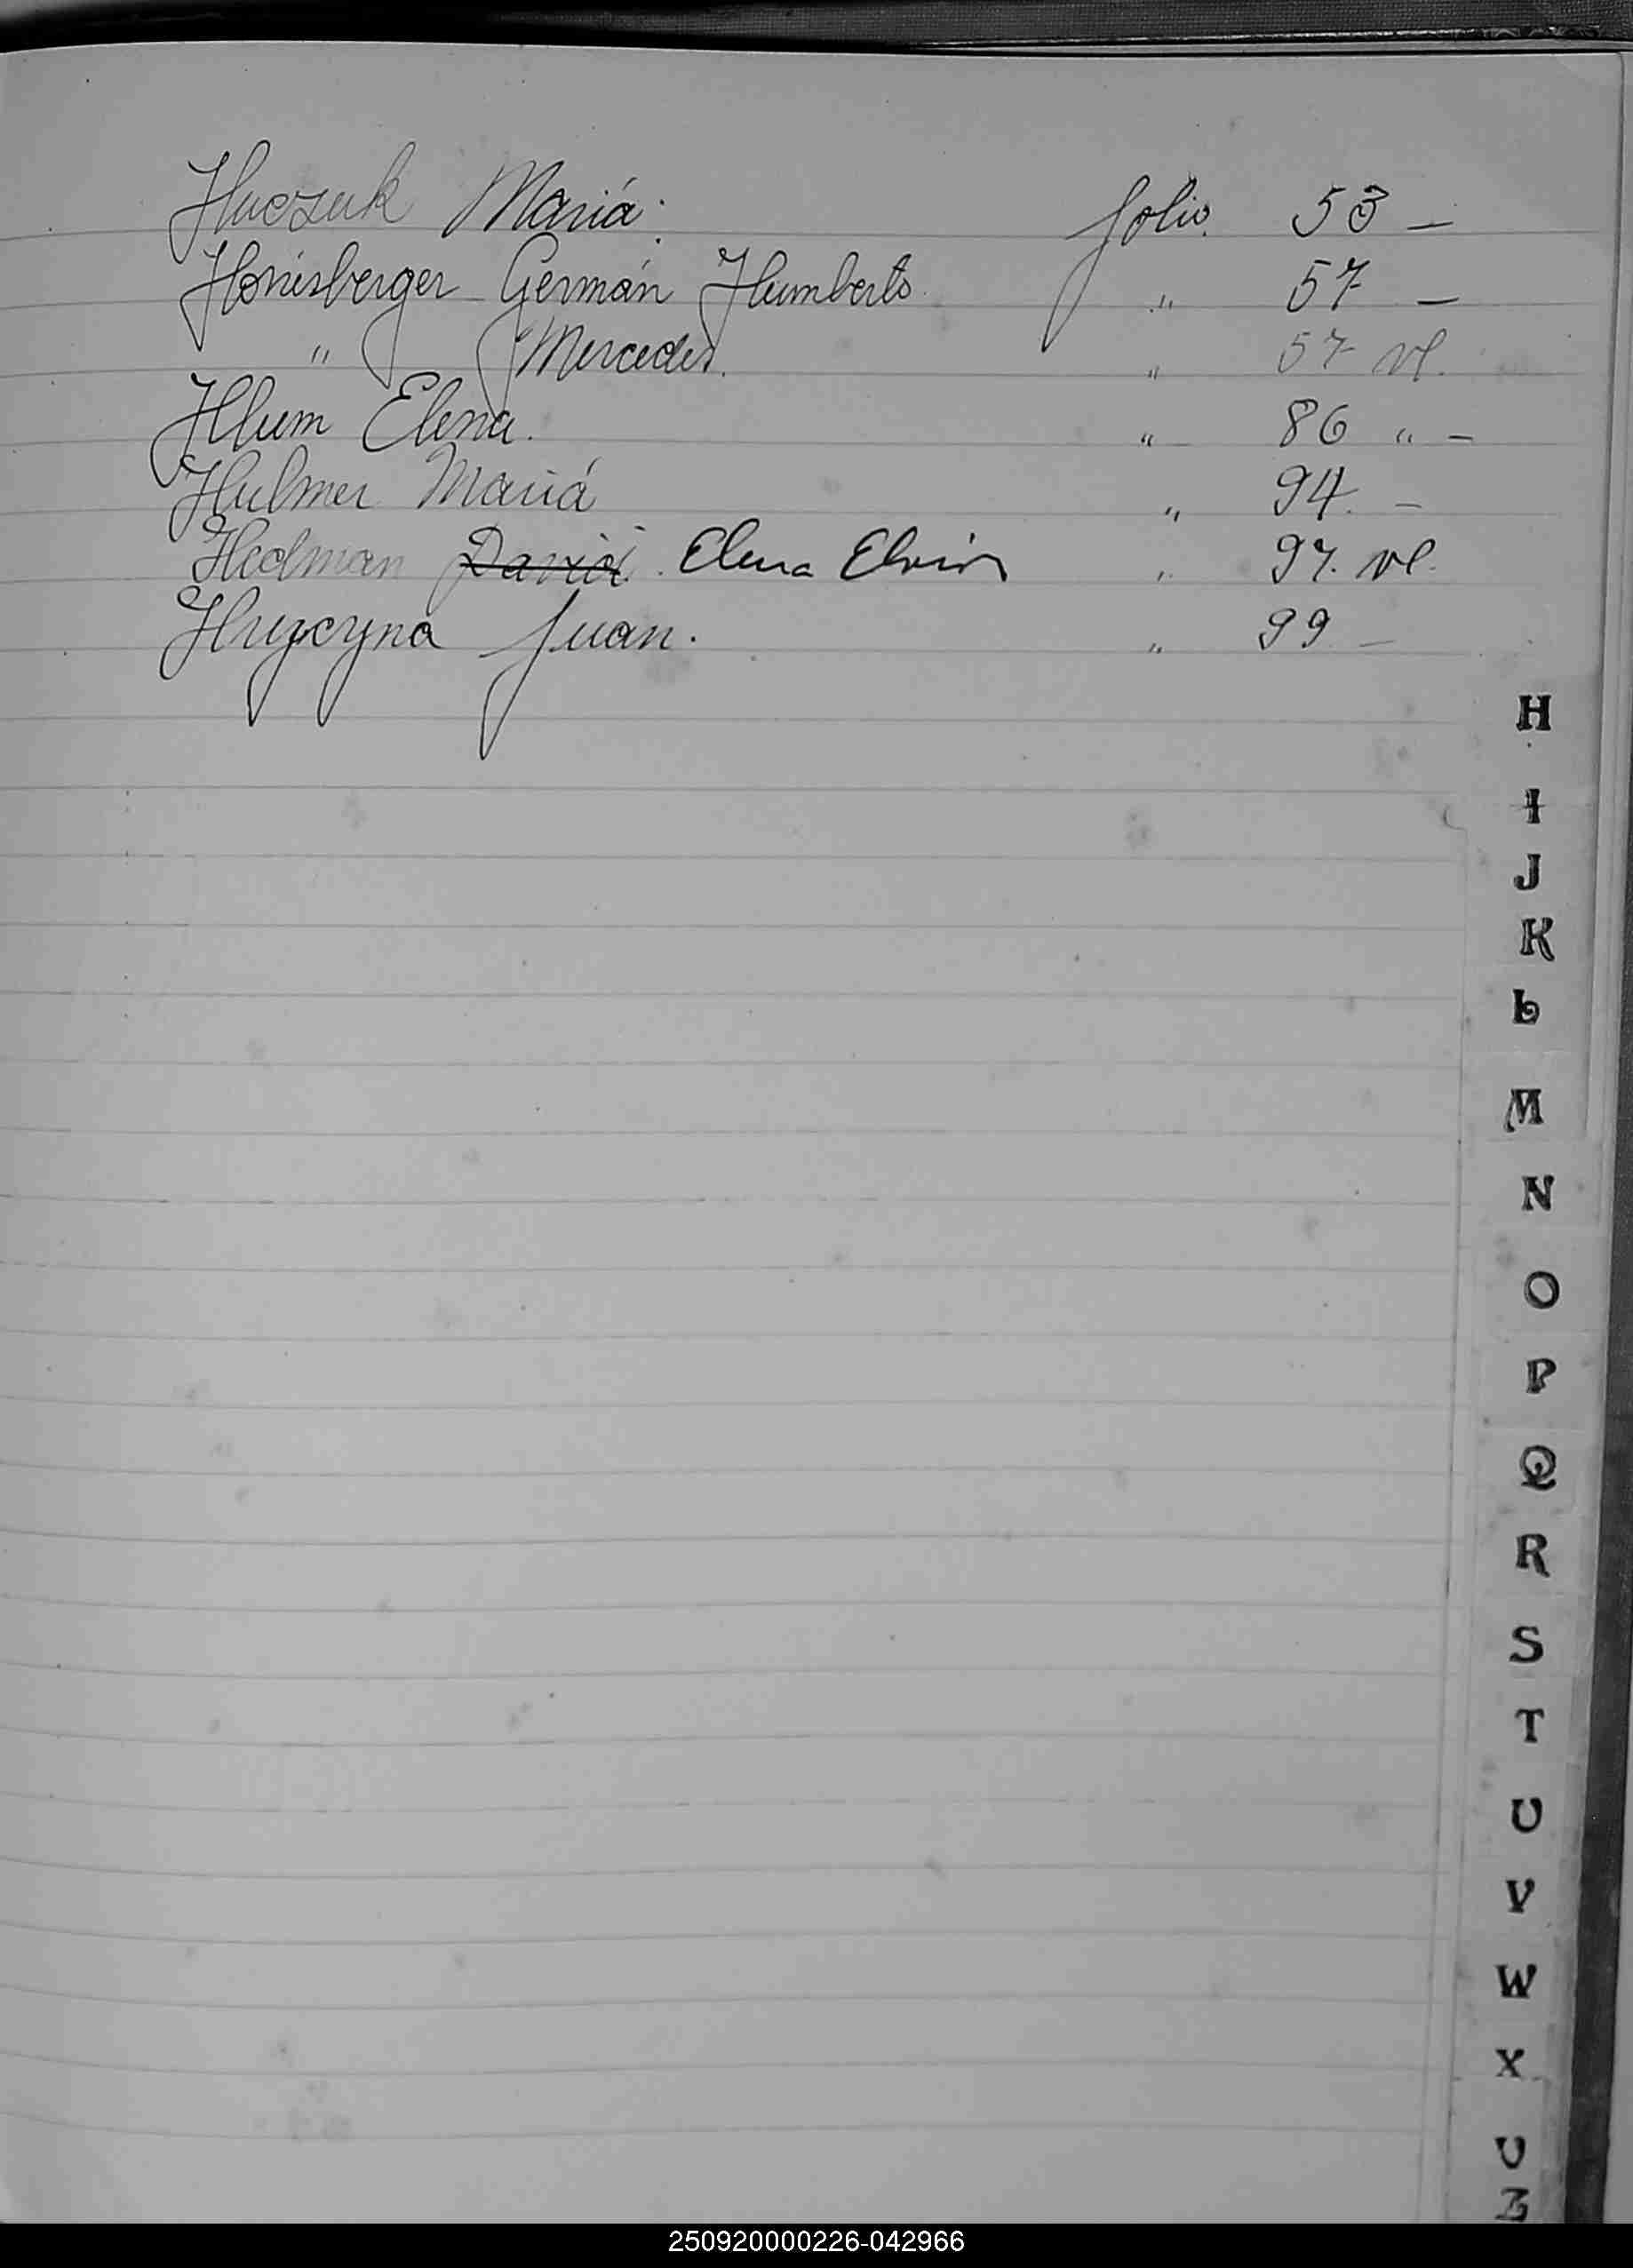 Huczuk María. folio. 53 —
Honisberger Germán Humberto. " 57 —
" Mercedes. " 57 vl.
Hlum Elena. " 86 " —
Hulmer María " 94. —
Hedman David. Elena Elvira " 97. vl.
Hrycyna Juan. " 99 —
H
I
J
K
L
M
N
O
P
Q
R
S
T
U
V
W
X
Z
250920000226-042966